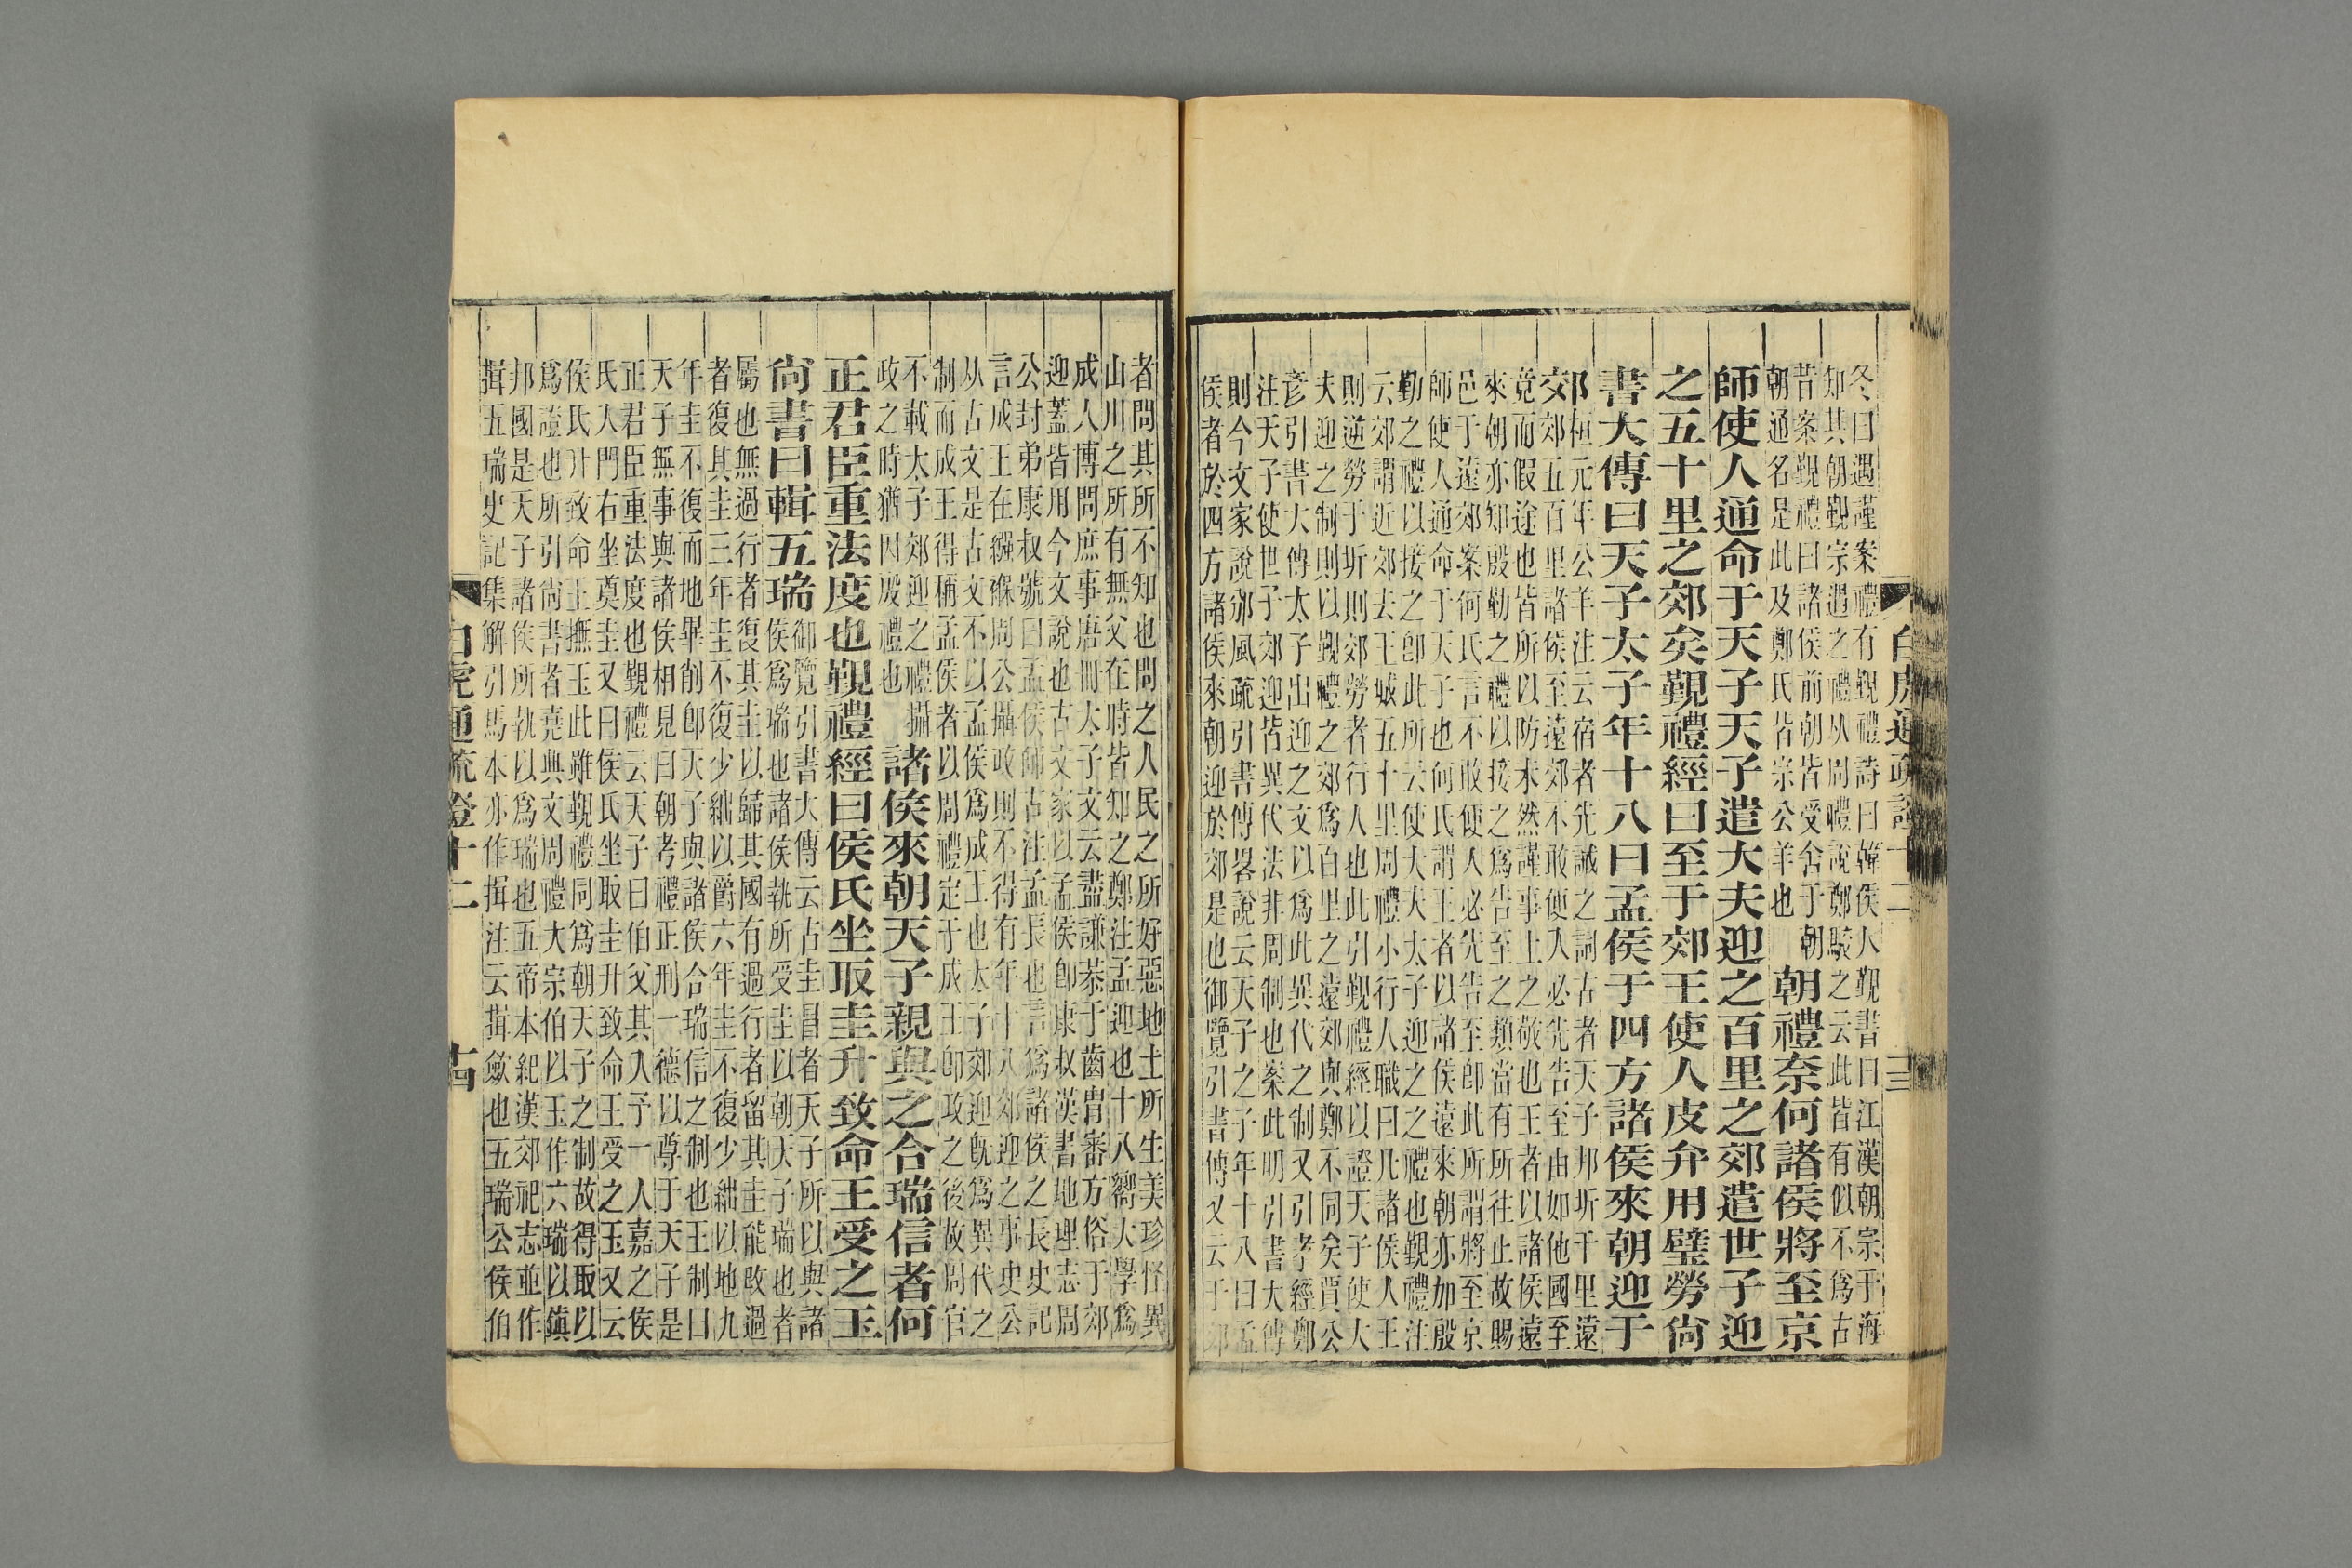 冬曰遇謹案禮有覲禮詩曰韓侯入覲書曰江漢朝宗于海
知其朝覲宗遇之禮从周禮說鄭駮之云此皆有似不爲古
昔案覲禮曰諸侯前朝皆受舍于朝
朝通名是此及鄭氏皆宗公羊也
朝禮奈何諸侯將至京
師使人通命于天子天子遣大夫迎之百里之郊遣世子迎
之五十里之郊矣覲禮經曰至于郊王使人皮弁用璧勞尙
書大傳曰天子太子年十八曰孟侯于四方諸侯來朝迎于
郊
桓元年公羊注云宿者先誡之詞古者天子邦圻千里遠
郊五百里諸侯至遠郊不敢便入必先告至由如他國至
竟而假途也皆所以防未然謹事上之敬也王者以諸侯遠
來朝亦知殷勤之禮以接之爲告至之類當有所往止故賜
邑于遠郊案何氏言不敢便人必先告至卽此所謂將至京
師使人通命于天子也何氏謂王者以諸侯遠來朝亦加殷
勤之禮以接之卽此所云使大夫太子迎之之禮也覲禮注
云郊謂近郊去王城五十里周禮小行人職曰凡諸侯人王
則逆勞于圻則郊勞者行人也此引覲禮經以證天子使大
夫迎之制則以覲禮之郊爲百里之遠郊與鄭不同矣賈公
彥引書大傳太子出迎之文以爲此異代之制又引孝經鄭
注天子使世子郊迎皆異代法非周制也案此明引書大傳
則今文家說邠風疏引書傳畧說云天子之子年十八曰孟
侯者於四方諸侯來朝迎於郊是也御覽引書傳又云于郊
白虎通疏證十二
十三
者問其所不知也問之人民之所好惡地土所生美珍怪異
山川之所有無父在時皆知之鄭注孟迎也十八嚮大學爲
成人博問庶事唐冊太子文云盡謙恭于齒冑審方俗于郊
迎蓋皆用今文說也古文家以孟侯卽康叔漢書地理志周
公封弟康叔號曰孟侯師古注孟長也言爲諸侯之長史記
言成王在繈褓周公攝政則不得有年十八郊迎之事史公
从古文是古文不以孟侯爲成王也太子郊迎旣爲異代之
制而成王得稱孟侯者以周禮定于成王卽政之後故周官
不載太子郊迎之禮攝
政之時猶因殷禮也
諸侯來朝天子親與之合瑞信者何
正君臣重法度也覲禮經曰侯氏坐取圭升致命王受之玉
尙書曰輯五瑞
御覽引書大傳云古圭冒者天子所以與諸
侯爲瑞也諸侯執所受圭以朝天子瑞也者
屬也無過行者復其圭以歸其國有過行者留其圭能改過
者復其圭三年圭不復少絀以爵六年圭不復少絀以地九
年圭不復而地畢削卽天子與諸侯合瑞信之制也王制曰
天子無事與諸侯相見曰朝考禮正刑一德以尊于天子是
正君臣重法度也覲禮云天子曰伯父其入予一人嘉之侯
氏人門右坐奠圭又曰侯氏坐取圭升致命王受之玉又云
侯氏升致命王撫玉此雖覲禮同爲朝天子之制故得取以
爲證也所引尙書者堯典文周禮大宗伯以玉作六瑞以鎭
邦國是天子諸侯所執以爲瑞也五帝本紀漢郊祀志並作
揖五瑞史記集解引馬本亦作揖注云揖斂也五瑞公侯伯
白虎通疏證十二
古